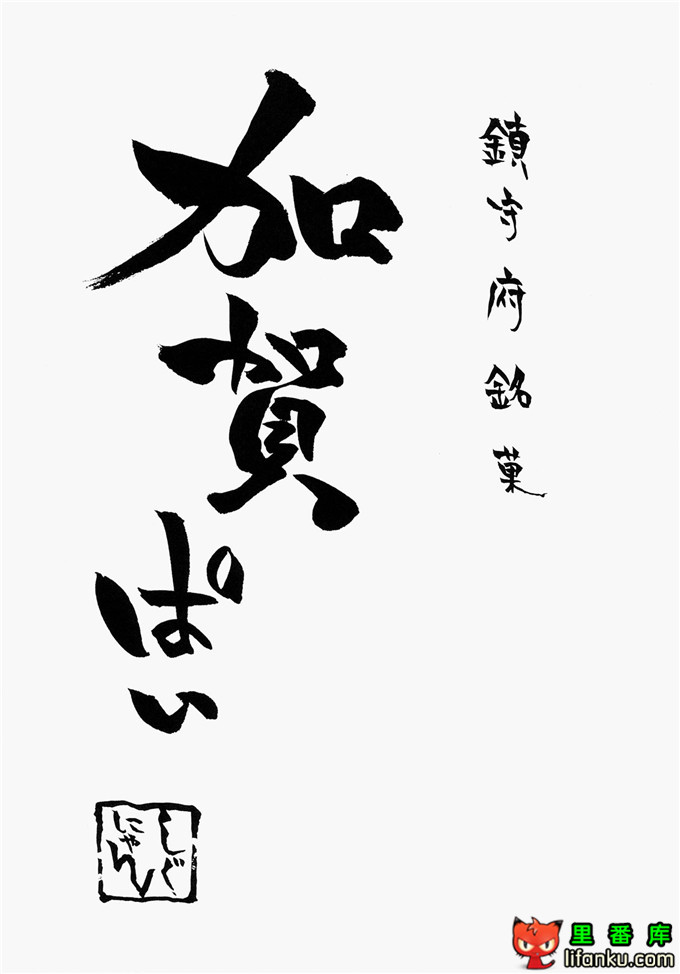 鎮守府銘菓
加賀ぱい
しぐ
にゃん
里番库
lifanku.com